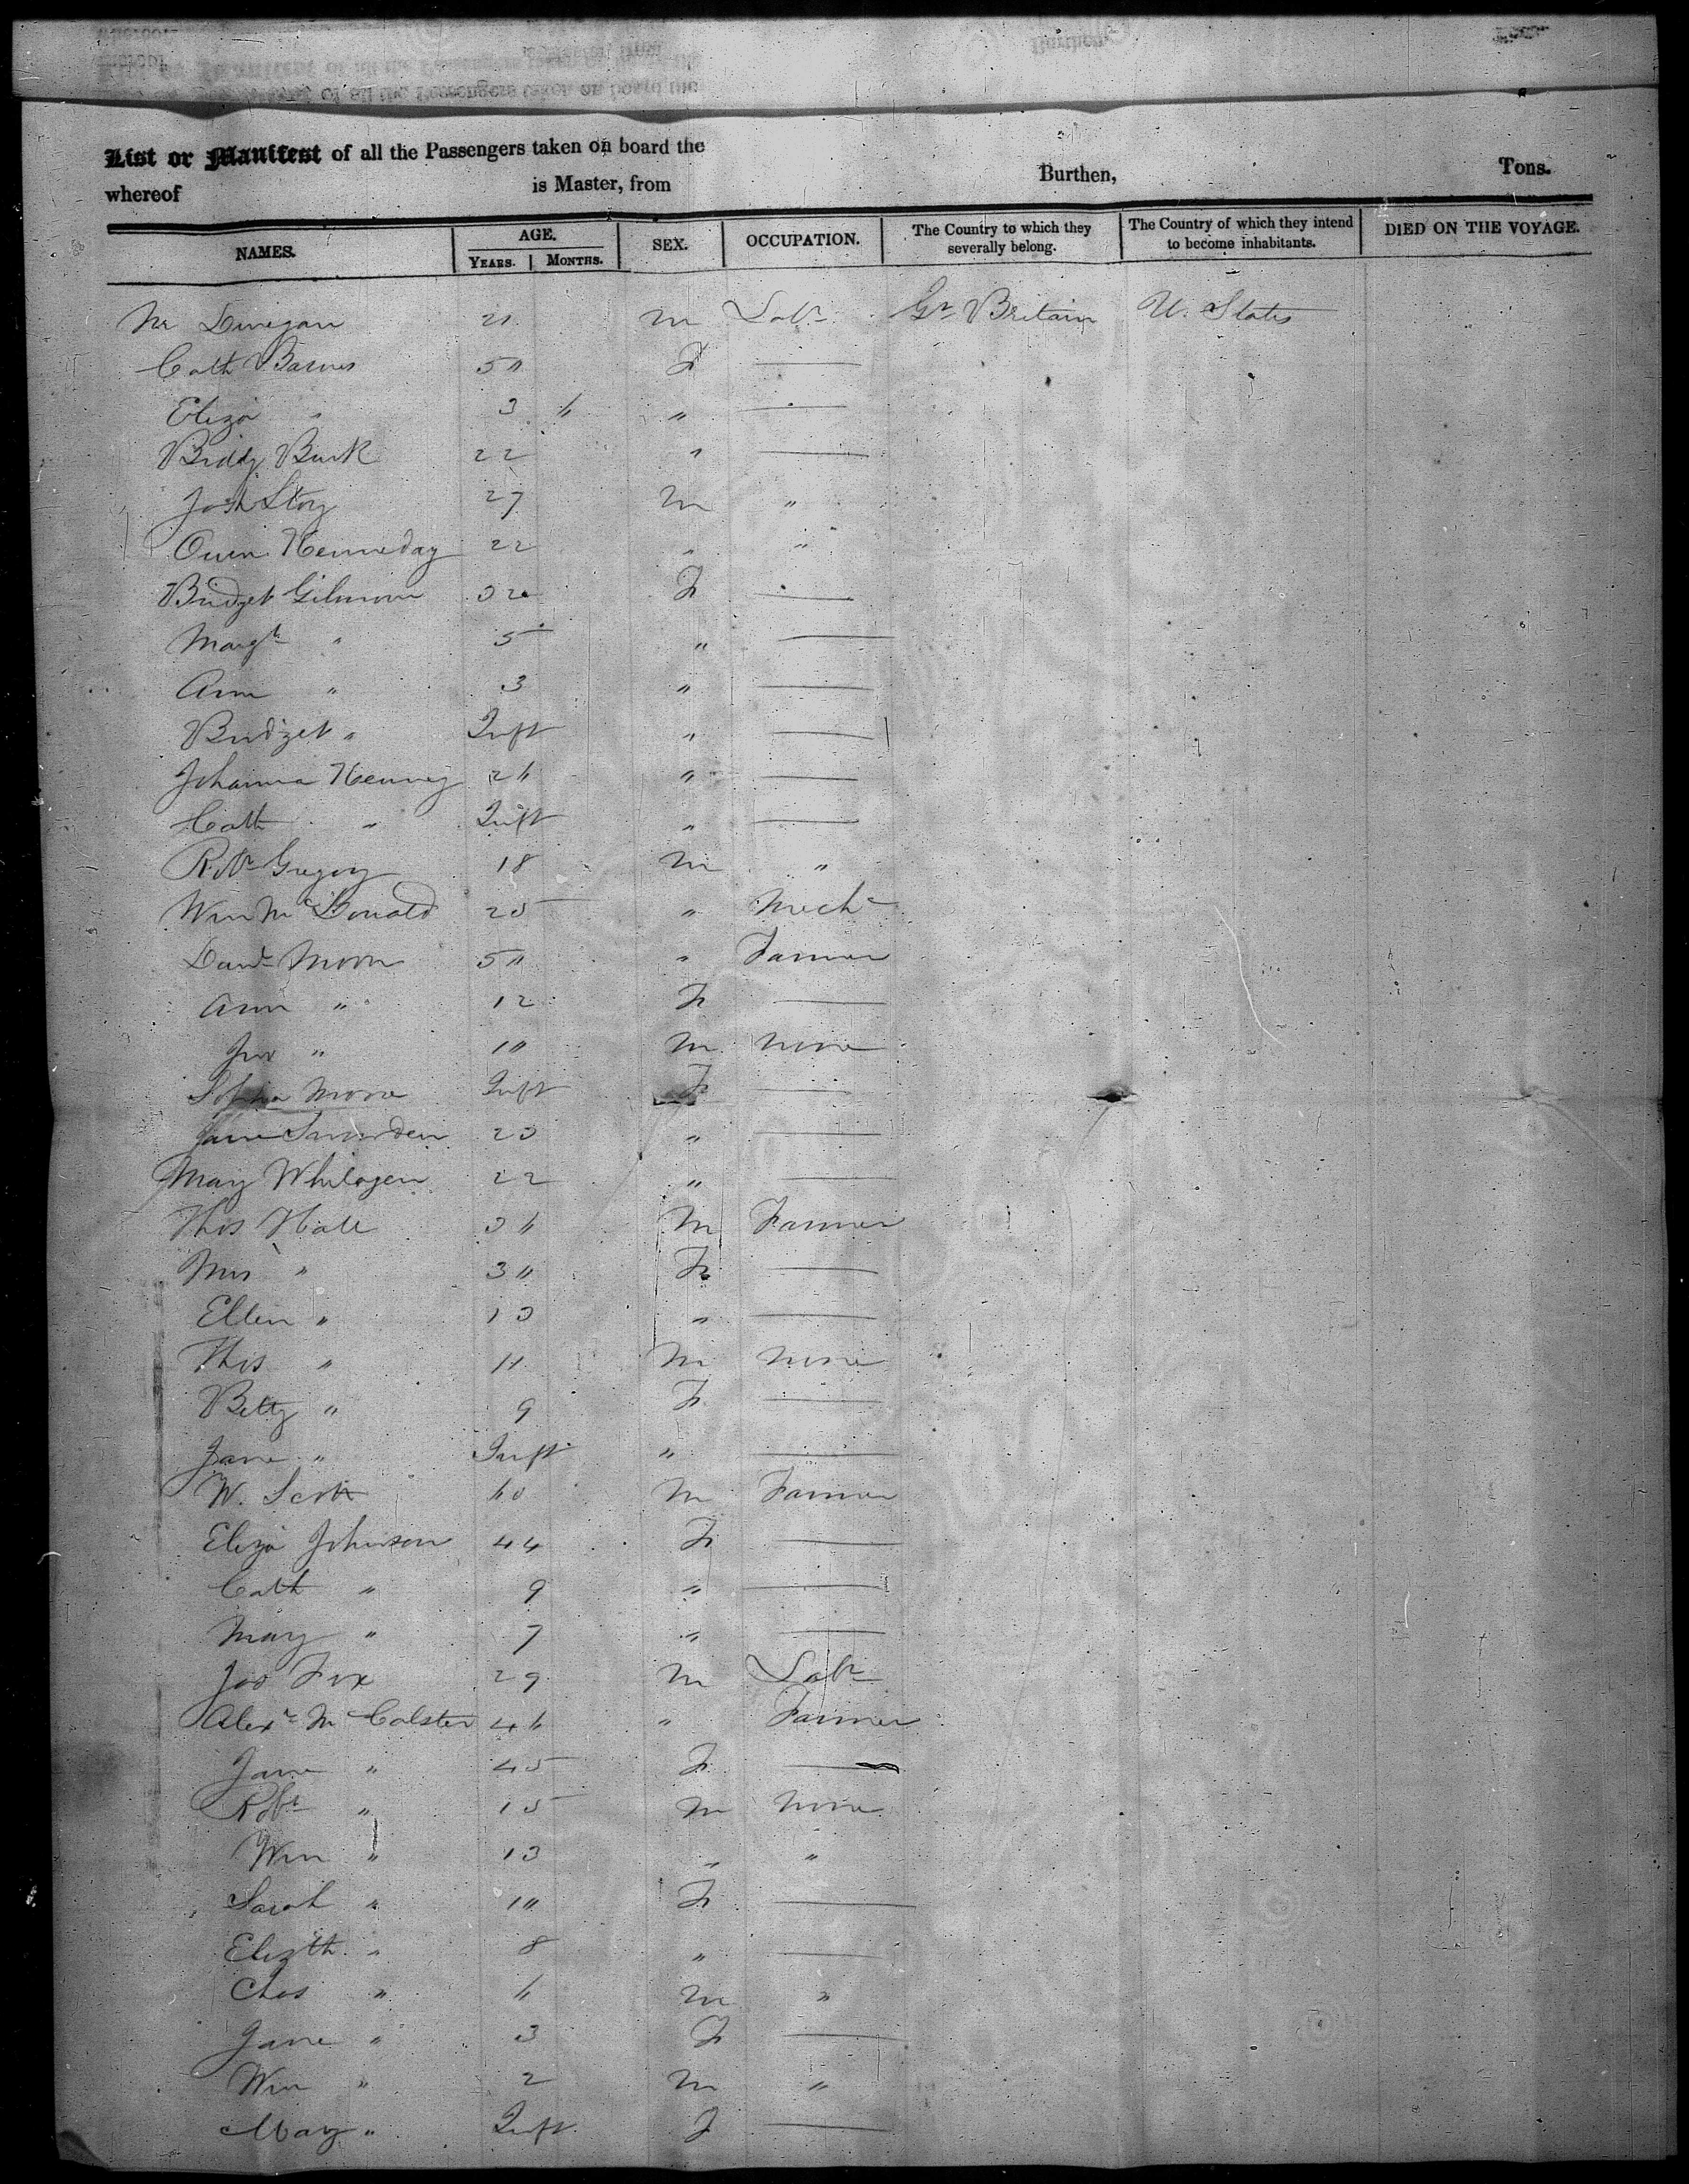 List or Manifest of all the Passengers taken on board the
whereof is Master, from Burthen, Tons.
NAMES. AGE. YEARS. MONTHS. SEX. OCCUPATION. The Country to which they severally belong. The Country of which they intend to become inhabitants. DIED ON THE VOYAGE.
21 M Labr Gr Britain U. States
Cath Barnes 50 F —
Eliza " 3 6 " —
Biddy Burk 22 " —
Josh Story 27 M "
Owen Kenneday 22 " "
Bridget Gilmour 32 F —
Margt " 5 " —
Ann " 3 " —
Bridget " Inft " —
Johanna Kenney 26 " —
Cath " Inft " —
Robt Gregory 18 M "
Wm McDonald 25 " Mechc
Danl Moore 50 " Farmer
Ann " 12 F —
Jno " 10 M none
Sophia Moore Inft F —
Jane 23 " —
Mary 22 " —
Thos Hall 36 M Farmer
Mrs " 30 F —
Ellen " 13 " —
Thos " 11 M none
Betty " 9 F —
Jane " Inft " —
W. Scott 60 M Farmer
Eliza Johnson 44 F —
Cath " 9 " —
Mary " 7 " —
Jas Fox 29 M Labr
Alexr McCalster 46 " Farmer
Jane " 45 F —
Robt " 15 M none
Wm " 13 " "
Sarah " 10 F —
Elizth " 8 " —
Chas " 6 M "
Jane " 3 F —
Wm " 2 M "
Mary " Inft F —